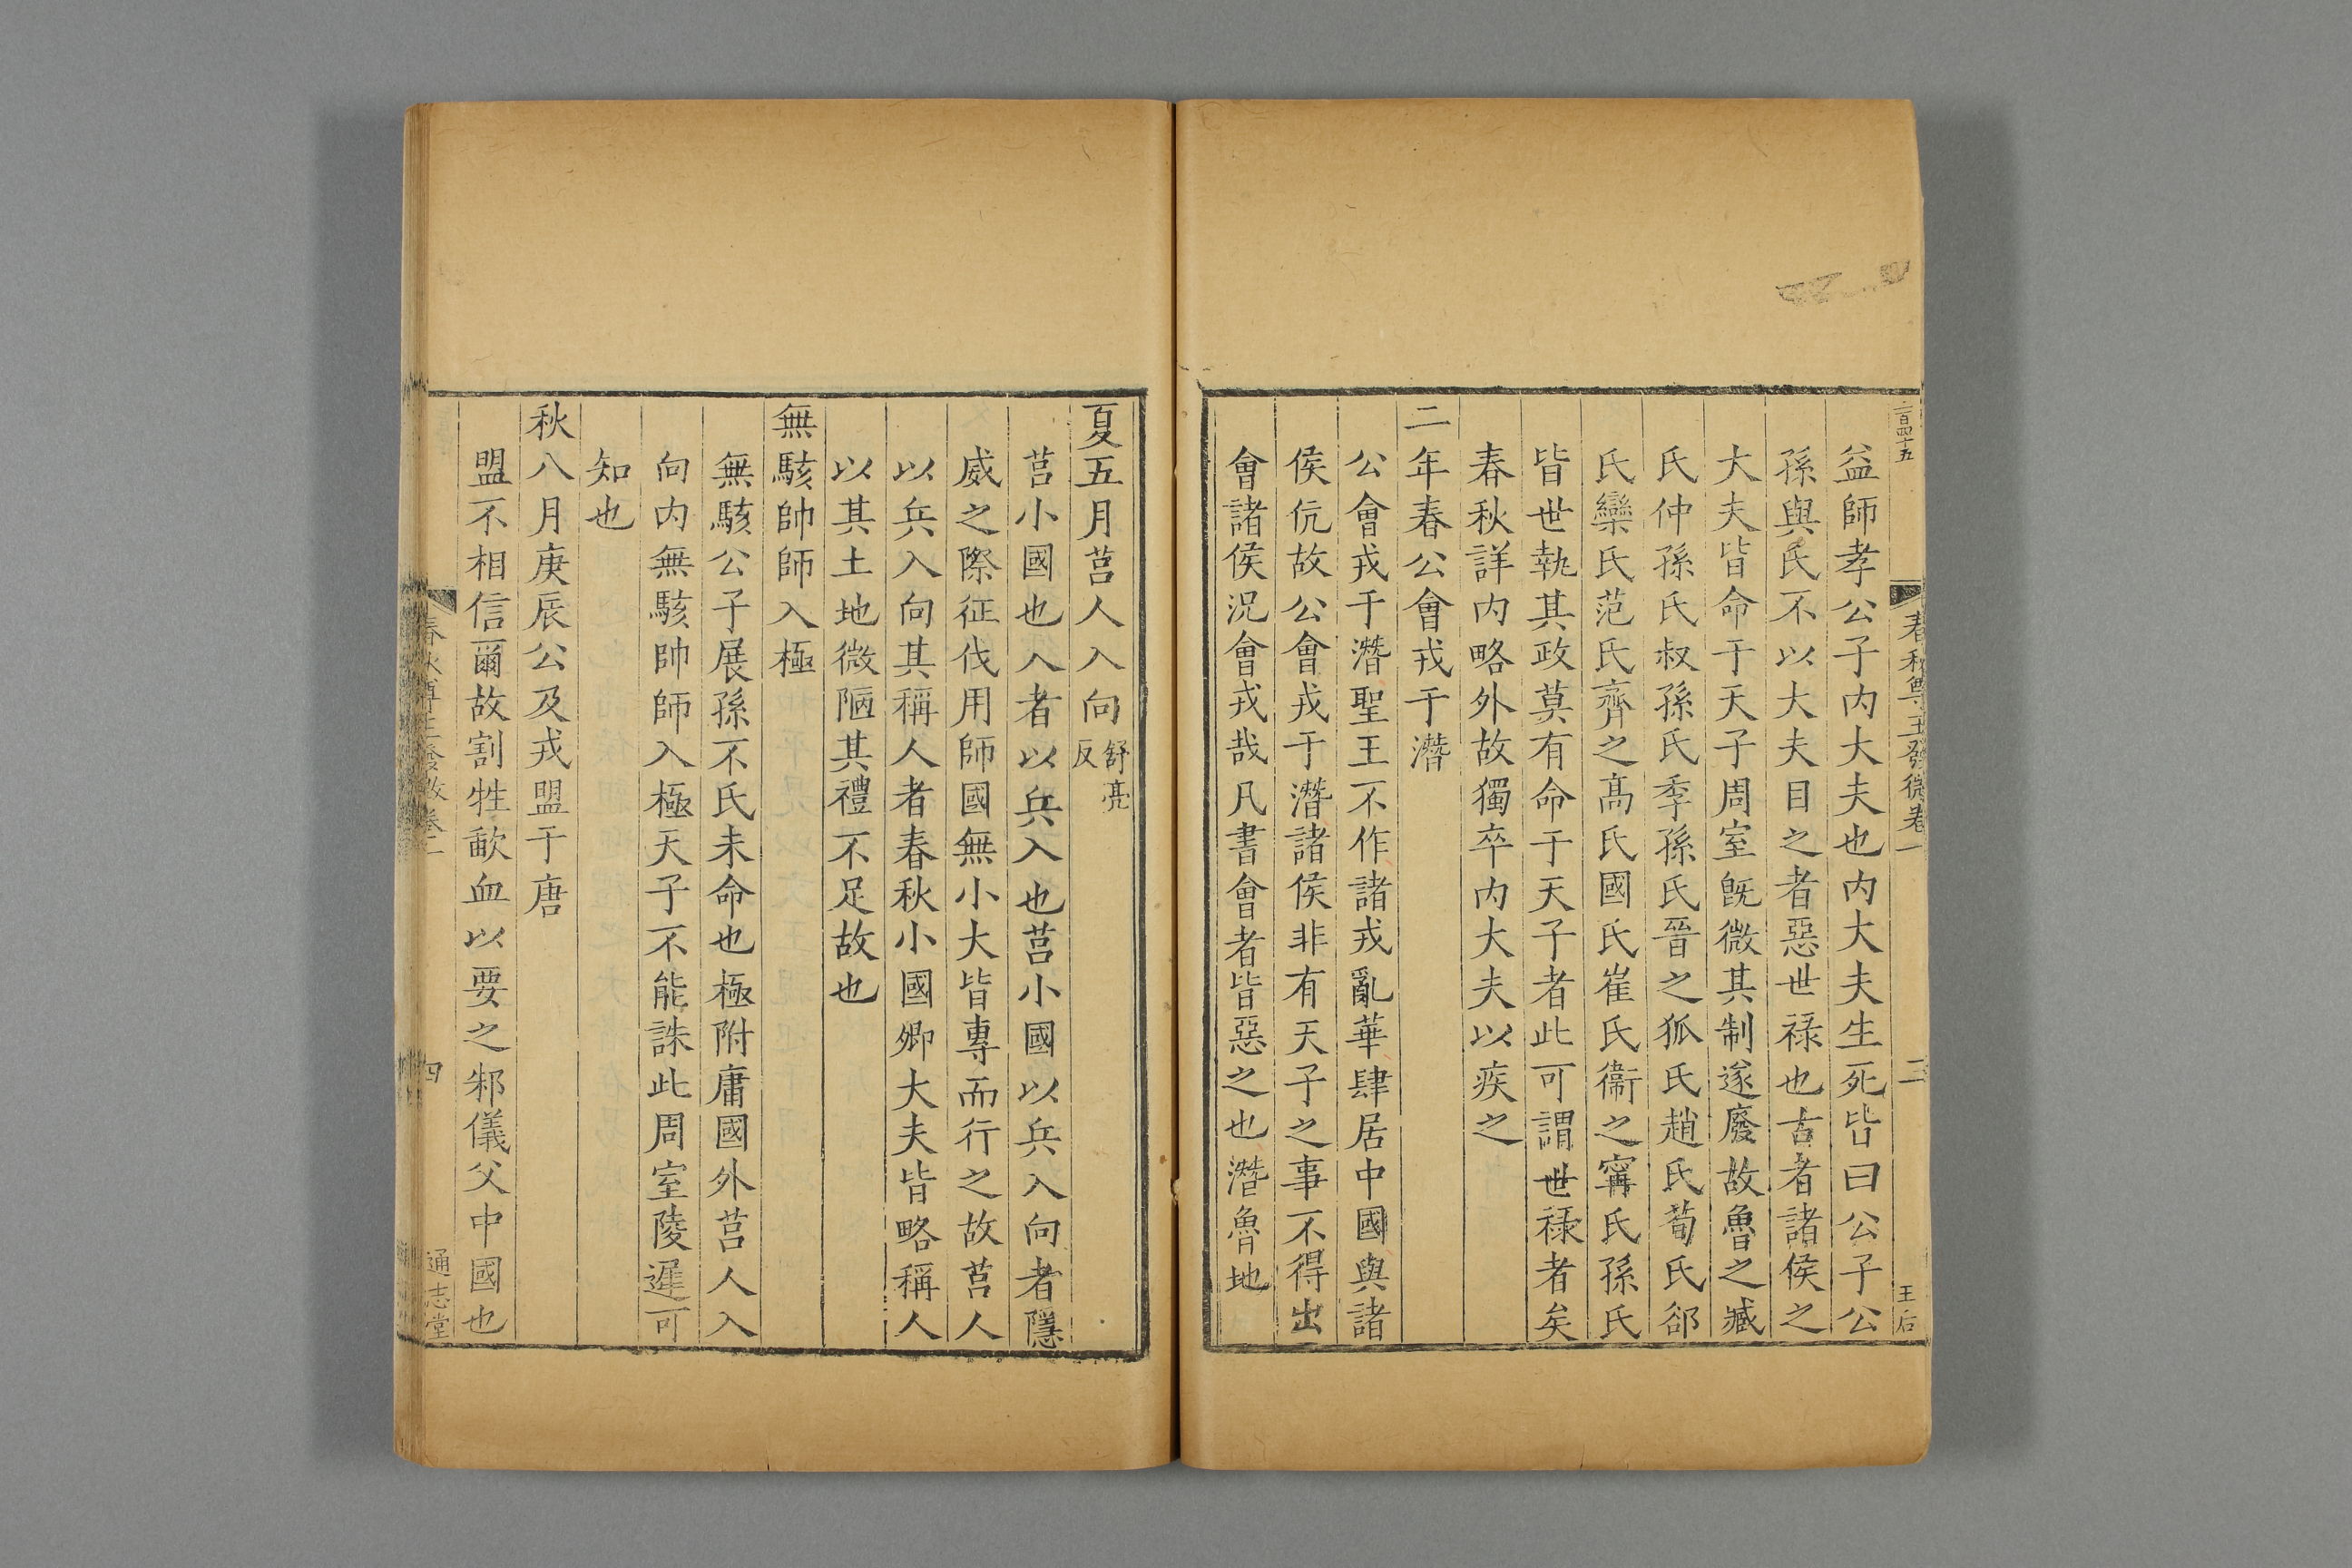 二百四十五
春秋尊王發微卷一
三
王后
益師孝公子内大夫也内大夫生死皆曰公子公
孫與氏不以大夫目之者惡世禄也古者諸侯之
大夫皆命于天子周室旣微其制遂廢故魯之臧
氏仲孫氏叔孫氏季孫氏晉之狐氏趙氏荀氏郤
氏欒氏范氏齊之高氏國氏崔氏衞之甯氏孫氏
皆世執其政莫有命于天子者此可謂世禄者矣
春秋詳内略外故獨卒内大夫以疾之
二年春公會戎于潛
公會戎于潛聖王不作諸戎亂華肆居中國與諸
侯伉故公會戎于潛諸侯非有天子之事不得出
會諸侯況會戎哉凡書會者皆惡之也潛魯地
夏五月莒人入向舒亮反
莒小國也入者以兵入也莒小國以兵入向者隱
威之際征伐用師國無小大皆專而行之故莒人
以兵入向其稱人者春秋小國卿大夫皆略稱人
以其土地微陋其禮不足故也
無駭帥師入極
無駭公子展孫不氏未命也極附庸國外莒人入
向内無駭帥師入極天子不能誅此周室陵遲可
知也
秋八月庚辰公及戎盟于唐
盟不相信爾故割牲歃血以要之邾儀父中國也
春秋尊王發微卷一
四
通志堂